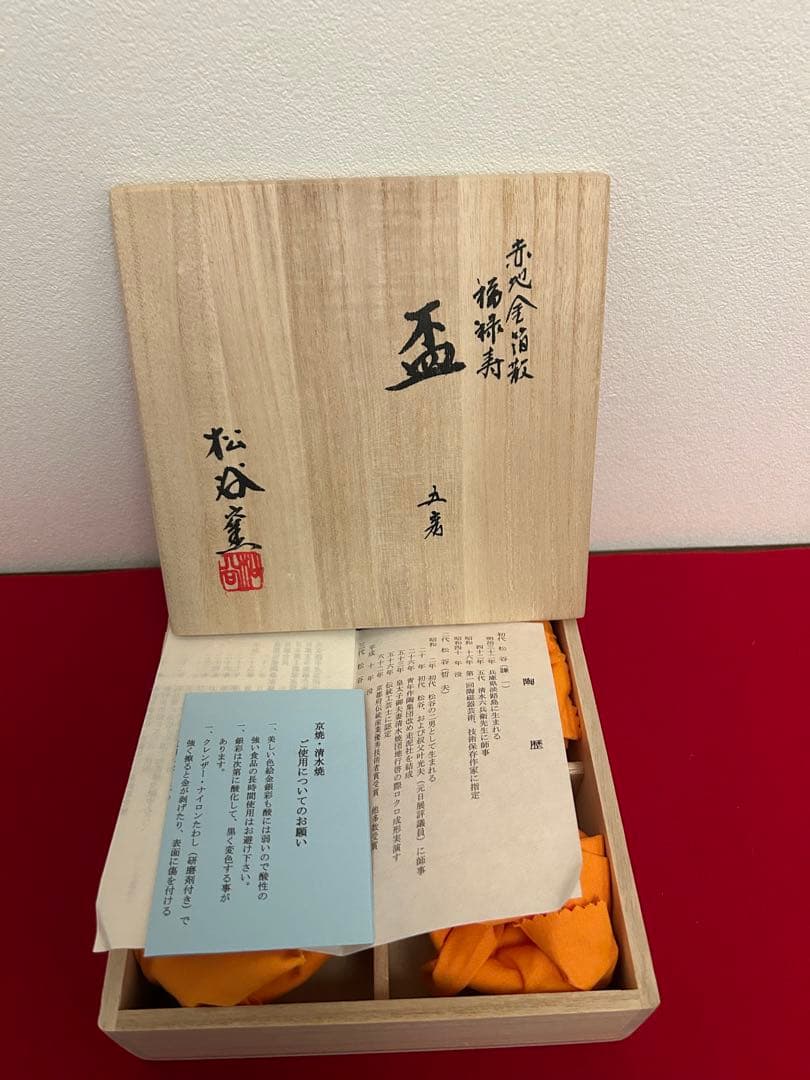 赤地金箔散
福禄寿
盃
五客
松谷窯
松谷
陶歴
初代 松谷(謙一)
明治三十二年 兵庫県淡路島に生まれる
四十二年 五代 清水六兵衛先生に師事
昭和 十六年 第一回陶磁器芸術、技術保存作家に指定
昭和四十 年 没
二代 松谷(哲夫)
昭和 二年 初代 松谷の二男として生まれる
二十 年 初代 松谷、および叔父叶光夫(元日展評議員)に師事
二十六年 青年作陶集団改め走泥社を結成
五十三年 皇太子御夫妻清水焼団地行啓の際ロクロ成形実演す
五十六年 伝統工芸士に認定
六十二年 京都府伝統産業優秀技術者賞受賞 他多数受賞
平成 十 年 没
三代 松谷
京焼・清水焼
ご使用についてのお願い
一、美しい色絵金銀彩も酸には弱いので酸性の
強い食品の長時間使用はお避け下さい。
一、銀彩は次第に酸化して、黒く変色する事が
あります。
一、クレンザー・ナイロンたわし(研磨剤付き)で
強く擦ると金が剥げたり、表面に傷を付ける